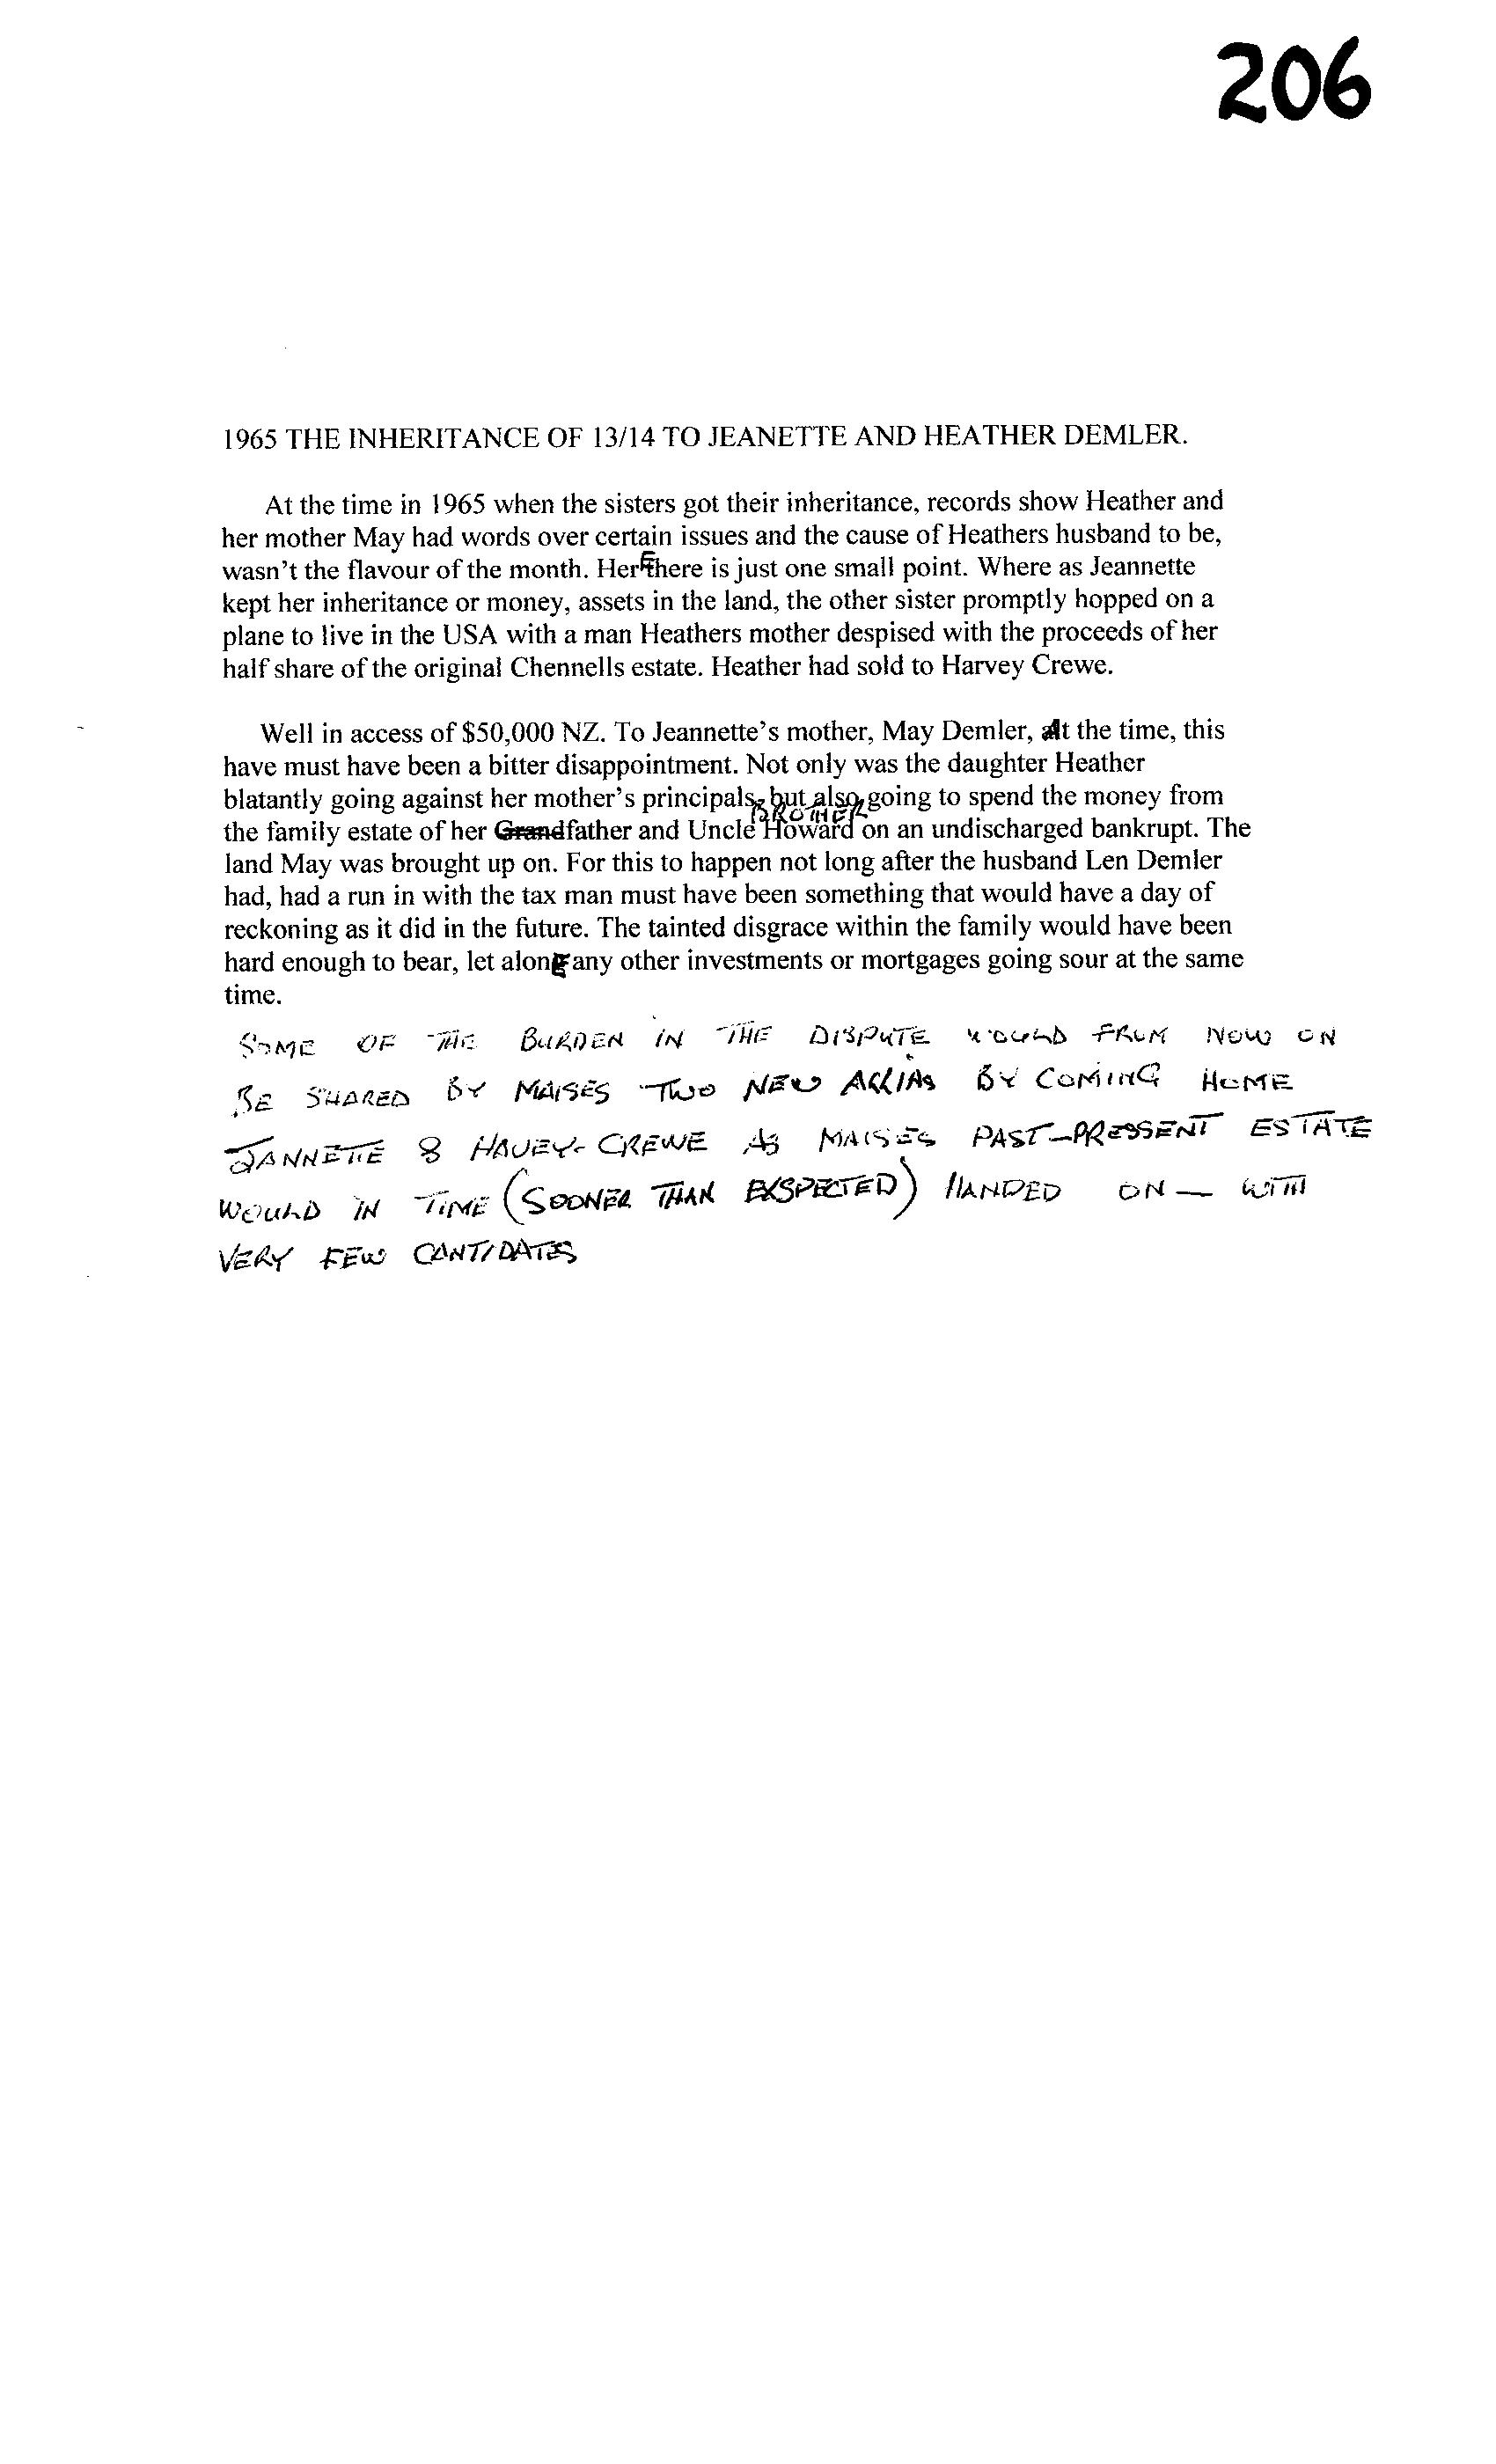 206
1965 THE INHERITANCE OF 13/14 TO JEANETTE AND HEATHER DEMLER.
At the time in 1965 when the sisters got their inheritance, records show Heather and
her mother May had words over certain issues and the cause of Heathers husband to be,
wasn't the flavour of the month. Here there is just one small point. Where as Jeannette
kept her inheritance or money, assets in the land, the other sister promptly hopped on a
plane to live in the USA with a man Heathers mother despised with the proceeds of her
half share of the original Chennells estate. Heather had sold to Harvey Crewe.
Well in access of $50,000 NZ. To Jeannette's mother, May Demler, At the time, this
have must have been a bitter disappointment. Not only was the daughter Heather
blatantly going against her mother's principals, but also, going to spend the money from
BROTHER
the family estate of her Grandfather and Uncle Howard on an undischarged bankrupt. The
land May was brought up on. For this to happen not long after the husband Len Demler
had, had a run in with the tax man must have been something that would have a day of
reckoning as it did in the future. The tainted disgrace within the family would have been
hard enough to bear, let along any other investments or mortgages going sour at the same
time.
SOME OF THE BURDEN IN THE DISPUTE WOULD FROM NOW ON
BE SHARED BY MAISES TWO NEW BY COMING HOME
JANNETTE & HAVEY-CREWE AS MAISES PAST-PRESSENT ESTATE
WOULD IN TIME (SOONER THAN EXSPECTED) HANDED ON — WITH
VERY FEW CANTIDATES